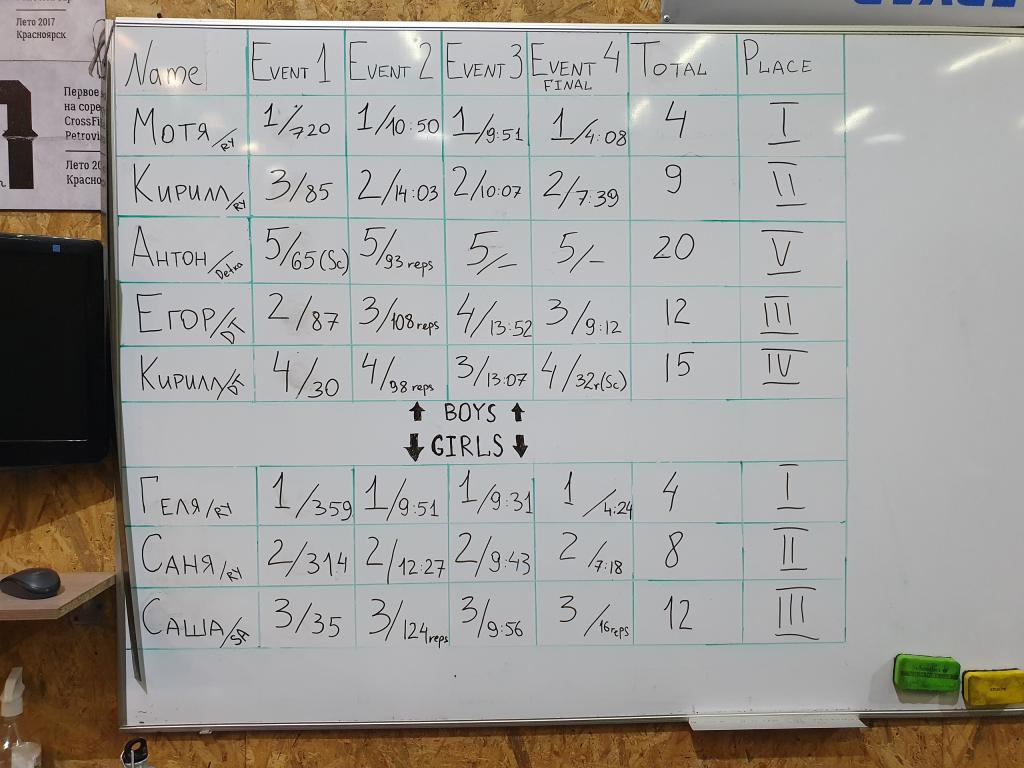 Лето 2017
Красноярск
Первое
на соре
CrossFi
Petrovi
Лето 20
Красно
Name EVENT 1 EVENT 2 EVENT 3 EVENT 4 FINAL TOTAL PLACE
МОТЯ/RY 1/720 1/10:50 1/9:51 1/4:08 4 I
КИРИЛЛ/RY 3/85 2/14:03 2/10:07 2/7:39 9 II
АНТОН/Detka 5/65(Sc) 5/93 reps 5/- 5/- 20 V
ЕГОР/DT 2/87 3/108 reps 4/13:52 3/9:12 12 III
КИРИЛЛ/DT 4/30 4/98 reps 3/13:07 4/32r(Sc) 15 IV
↑ BOYS ↑
↓ GIRLS ↓
ГЕЛЯ/RY 1/359 1/9:51 1/9:31 1/4:24 4 I
САНЯ/RY 2/314 2/12:27 2/9:43 2/7:18 8 II
САША/SA 3/35 3/124 reps 3/9:56 3/16 reps 12 III